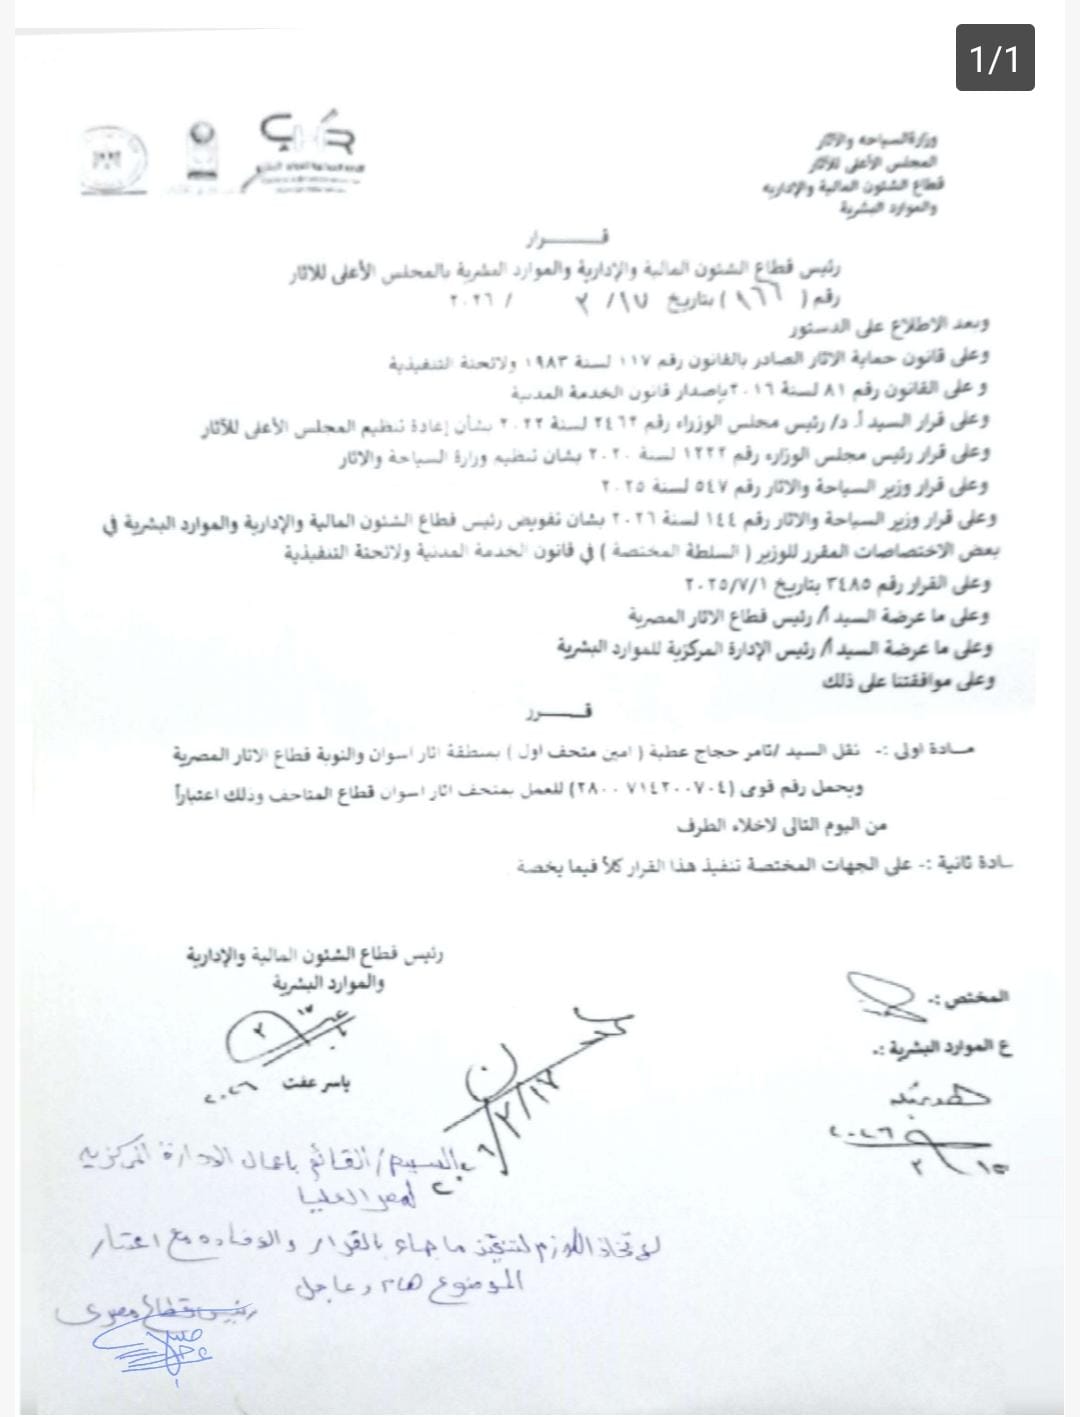 1/1
وزارة السياحه والآثار
المجلس الأعلى للآثار
قطاع الشئون المالية والإداريه
والموارد البشرية
قـــــــرار
رئيس قطاع الشئون المالية والإدارية والموارد البشرية بالمجلس الأعلى للاثار
رقم ( ١٦٦ ) بتاريخ ١٧/ ٢ / ٢٠٢٦
وبعد الاطلاع على الدستور
وعلى قانون حماية الاثار الصادر بالقانون رقم ١١٧ لسنة ١٩٨٣ ولائحتة التنفيذية
و على القانون رقم ٨١ لسنة ٢٠١٦ بإصدار قانون الخدمة المدنية
وعلى قرار السيد أ. د/ رئيس مجلس الوزراء رقم ٢٤٦٢ لسنة ٢٠٢٢ بشأن إعادة تنظيم المجلس الأعلى للآثار
وعلى قرار رئيس مجلس الوزاره رقم ١٢٢٢ لسنة ٢٠٢٠ بشان تنظيم وزارة السياحة والاثار
وعلى قرار وزير السياحة والاثار رقم ٥٤٧ لسنة ٢٠٢٥
وعلى قرار وزير السياحة والاثار رقم ١٤٤ لسنة ٢٠٢٦ بشان تفويض رئيس قطاع الشئون المالية والإدارية والموارد البشرية في
بعض الاختصاصات المقرر للوزير ( السلطة المختصة ) في قانون الخدمة المدنية ولائحتة التنفيذية
وعلى القرار رقم ٣٤٨٥ بتاريخ ٢٠٢٥/٧/١
وعلى ما عرضة السيد أ/ رئيس قطاع الاثار المصرية
وعلى ما عرضة السيد أ/ رئيس الإدارة المركزية للموارد البشرية
وعلى موافقتنا على ذلك
قـــــرر
مــادة اولى :- نقل السيد /تامر حجاج عطية ( امين متحف اول ) بمنطقة اثار اسوان والنوبة قطاع الاثار المصرية
ويحمل رقم قوى (٢٨٠٠٧١٤٢٠٠٧٠٤) للعمل بمتحف اثار اسوان قطاع المتاحف وذلك اعتباراً
من اليوم التالى لاخلاء الطرف
ـادة ثانية :- على الجهات المختصة تنفيذ هذا القرار كلاً فيما يخصة
رئيس قطاع الشئون المالية والإدارية
والموارد البشرية
المختص :-
ع الموارد البشرية :-
ياسر عفت
٢٠٢٦
٢٠٢٦
١٥ ٢
٢/١٧
السيد/ القائم باعمال الادارة المركزيه
لمصر العليا
لاتخاذ اللازم لتنفيذ ما جاء بالقرار والافاده مع اعتبار
الموضوع هام وعاجل
رئيس قطاع مصرى